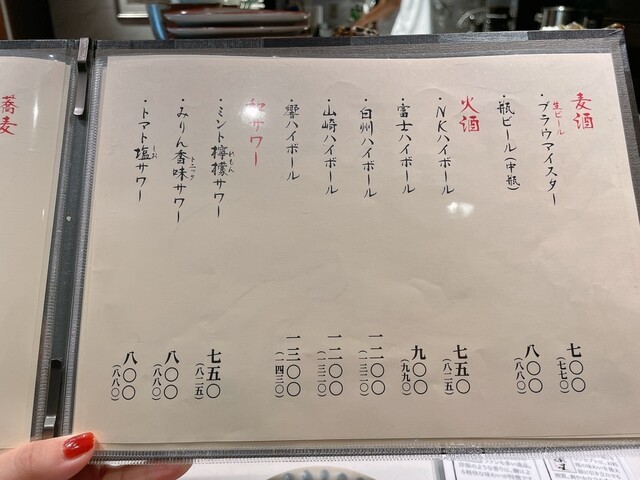 麦酒
生ビール
・ブラウマイスター
七〇〇
(七七〇)
・瓶ビール(中瓶)
八〇〇
(八八〇)
火酒
・NKハイボール
七五〇
(八二五)
・富士ハイボール
九〇〇
(九九〇)
・白州ハイボール
一二〇〇
(一三二〇)
・山崎ハイボール
一二〇〇
(一三二〇)
・響ハイボール
一三〇〇
(一四三〇)
サワー
・ミント檸檬サワー
れもん
七五〇
(八二五)
・みりん香味サワー
トニック
八〇〇
(八八〇)
・トマト塩サワー
しお
八〇〇
(八八〇)
蕎麦